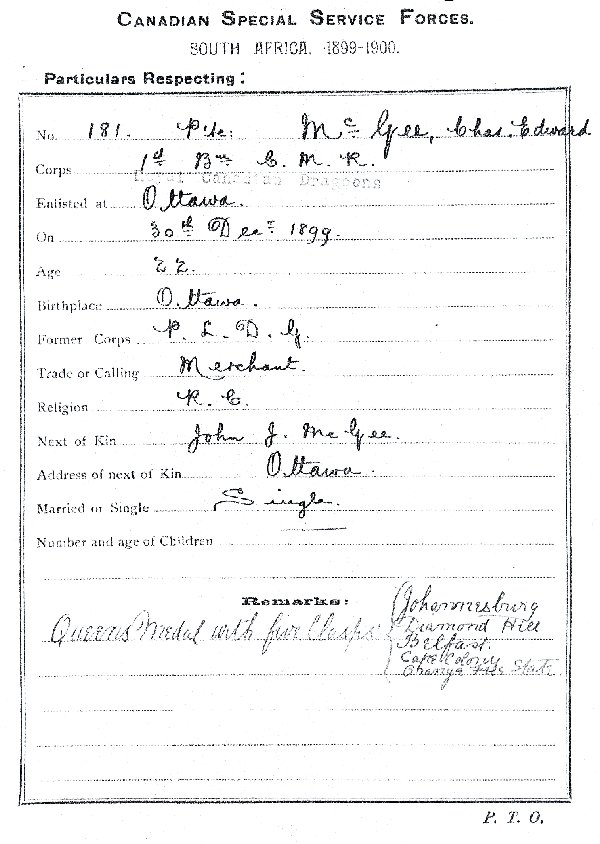 CANADIAN SPECIAL SERVICE FORCES.
SOUTH AFRICA. 1899-1900.
Particulars Respecting:
No. 181. Pte: McGee, Chas. Edward
Corps 1st Bn C. M. R.
Royal Canadian Dragoons
Enlisted at Ottawa.
On 30th Dec 1899.
Age 22.
Birthplace Ottawa.
Former Corps P. L. D. G.
Trade or Calling Merchant.
Religion R. C.
Next of Kin John J. McGee.
Address of next of Kin Ottawa.
Married or Single Single.
Number and age of Children
Remarks:
Queens Medal with five Clasps
Johannesburg
Diamond Hill
Belfast.
Cape Colony
Orange Free State
P. T. O.